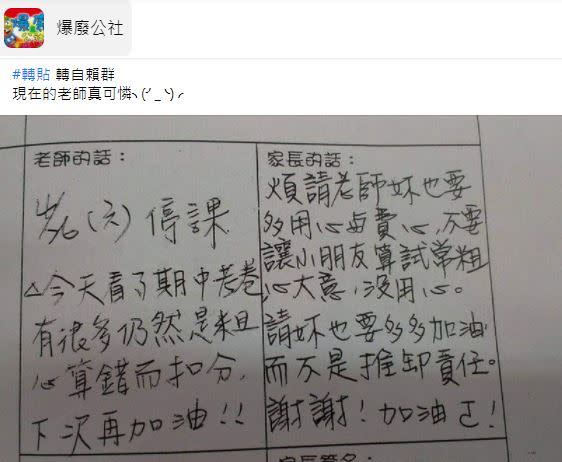 爆廢公社
#轉貼 轉自賴群
現在的老師真可憐ヽ(́◞_◟‵)ノ
老師的話：
(六)停課
△今天看了期中考卷
有很多仍然是粗
心算錯而扣分，
下次再加油!!
家長的話：
煩請老師妳也要
多用心與費心，不要
讓小朋友算試常粗
心大意，沒用心。
請妳也要多多加油
而不是推卸責任。
謝謝!加油
家長簽名：